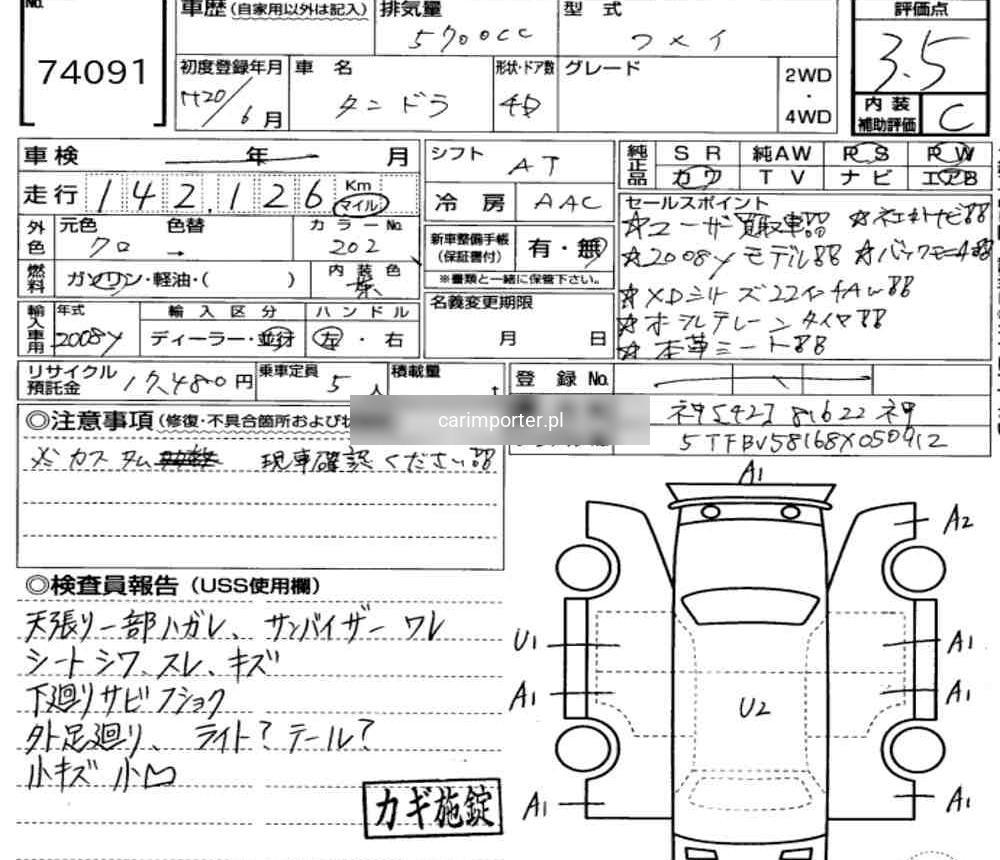 No.
74091
車歴(自家用以外は記入)
排気量
5700cc
型式
フメイ
評価点
3.5
初度登録年月
H20/6月
車名
タンドラ
形状・ドア数
4D
グレード
2WD
・
4WD
内装
補助評価
C
車検 年 月
シフト
AT
純正品
SR 純AW PS PW
カワ TV ナビ エアB
走行 142,126 Km マイル
冷房 AAC
セールスポイント
外色
元色 クロ
色替 →
カラーNo. 202
新車整備手帳
(保証書付)
有・無
※書類と一緒に保管下さい。
☆ユーザー買取車!!
☆2008yモデル!!
☆ホワイトレターじゃない
燃料
ガソリン・軽油・( )
内装色
茶
名義変更期限
月 日
輸入車用
年式
2008y
輸入区分
ディーラー・並行
ハンドル
左・右
☆本革シート!!
リサイクル
預託金
17,480円
乗車定員
5人
積載量
t
登録No.
◎注意事項(修復・不具合箇所および
carimporter.pl
5TFBV58168X050912
※カスタム
現車確認ください!!
◎検査員報告(USS使用欄)
天張り一部ハガレ、サンバイザーワレ
シートシワ、スレ、キズ
下廻りサビフショク
外足廻り、ライト?テール?
小キズ小凹
カギ施錠
A1
A2
U1
A1
A1
A1
U2
A1
A1